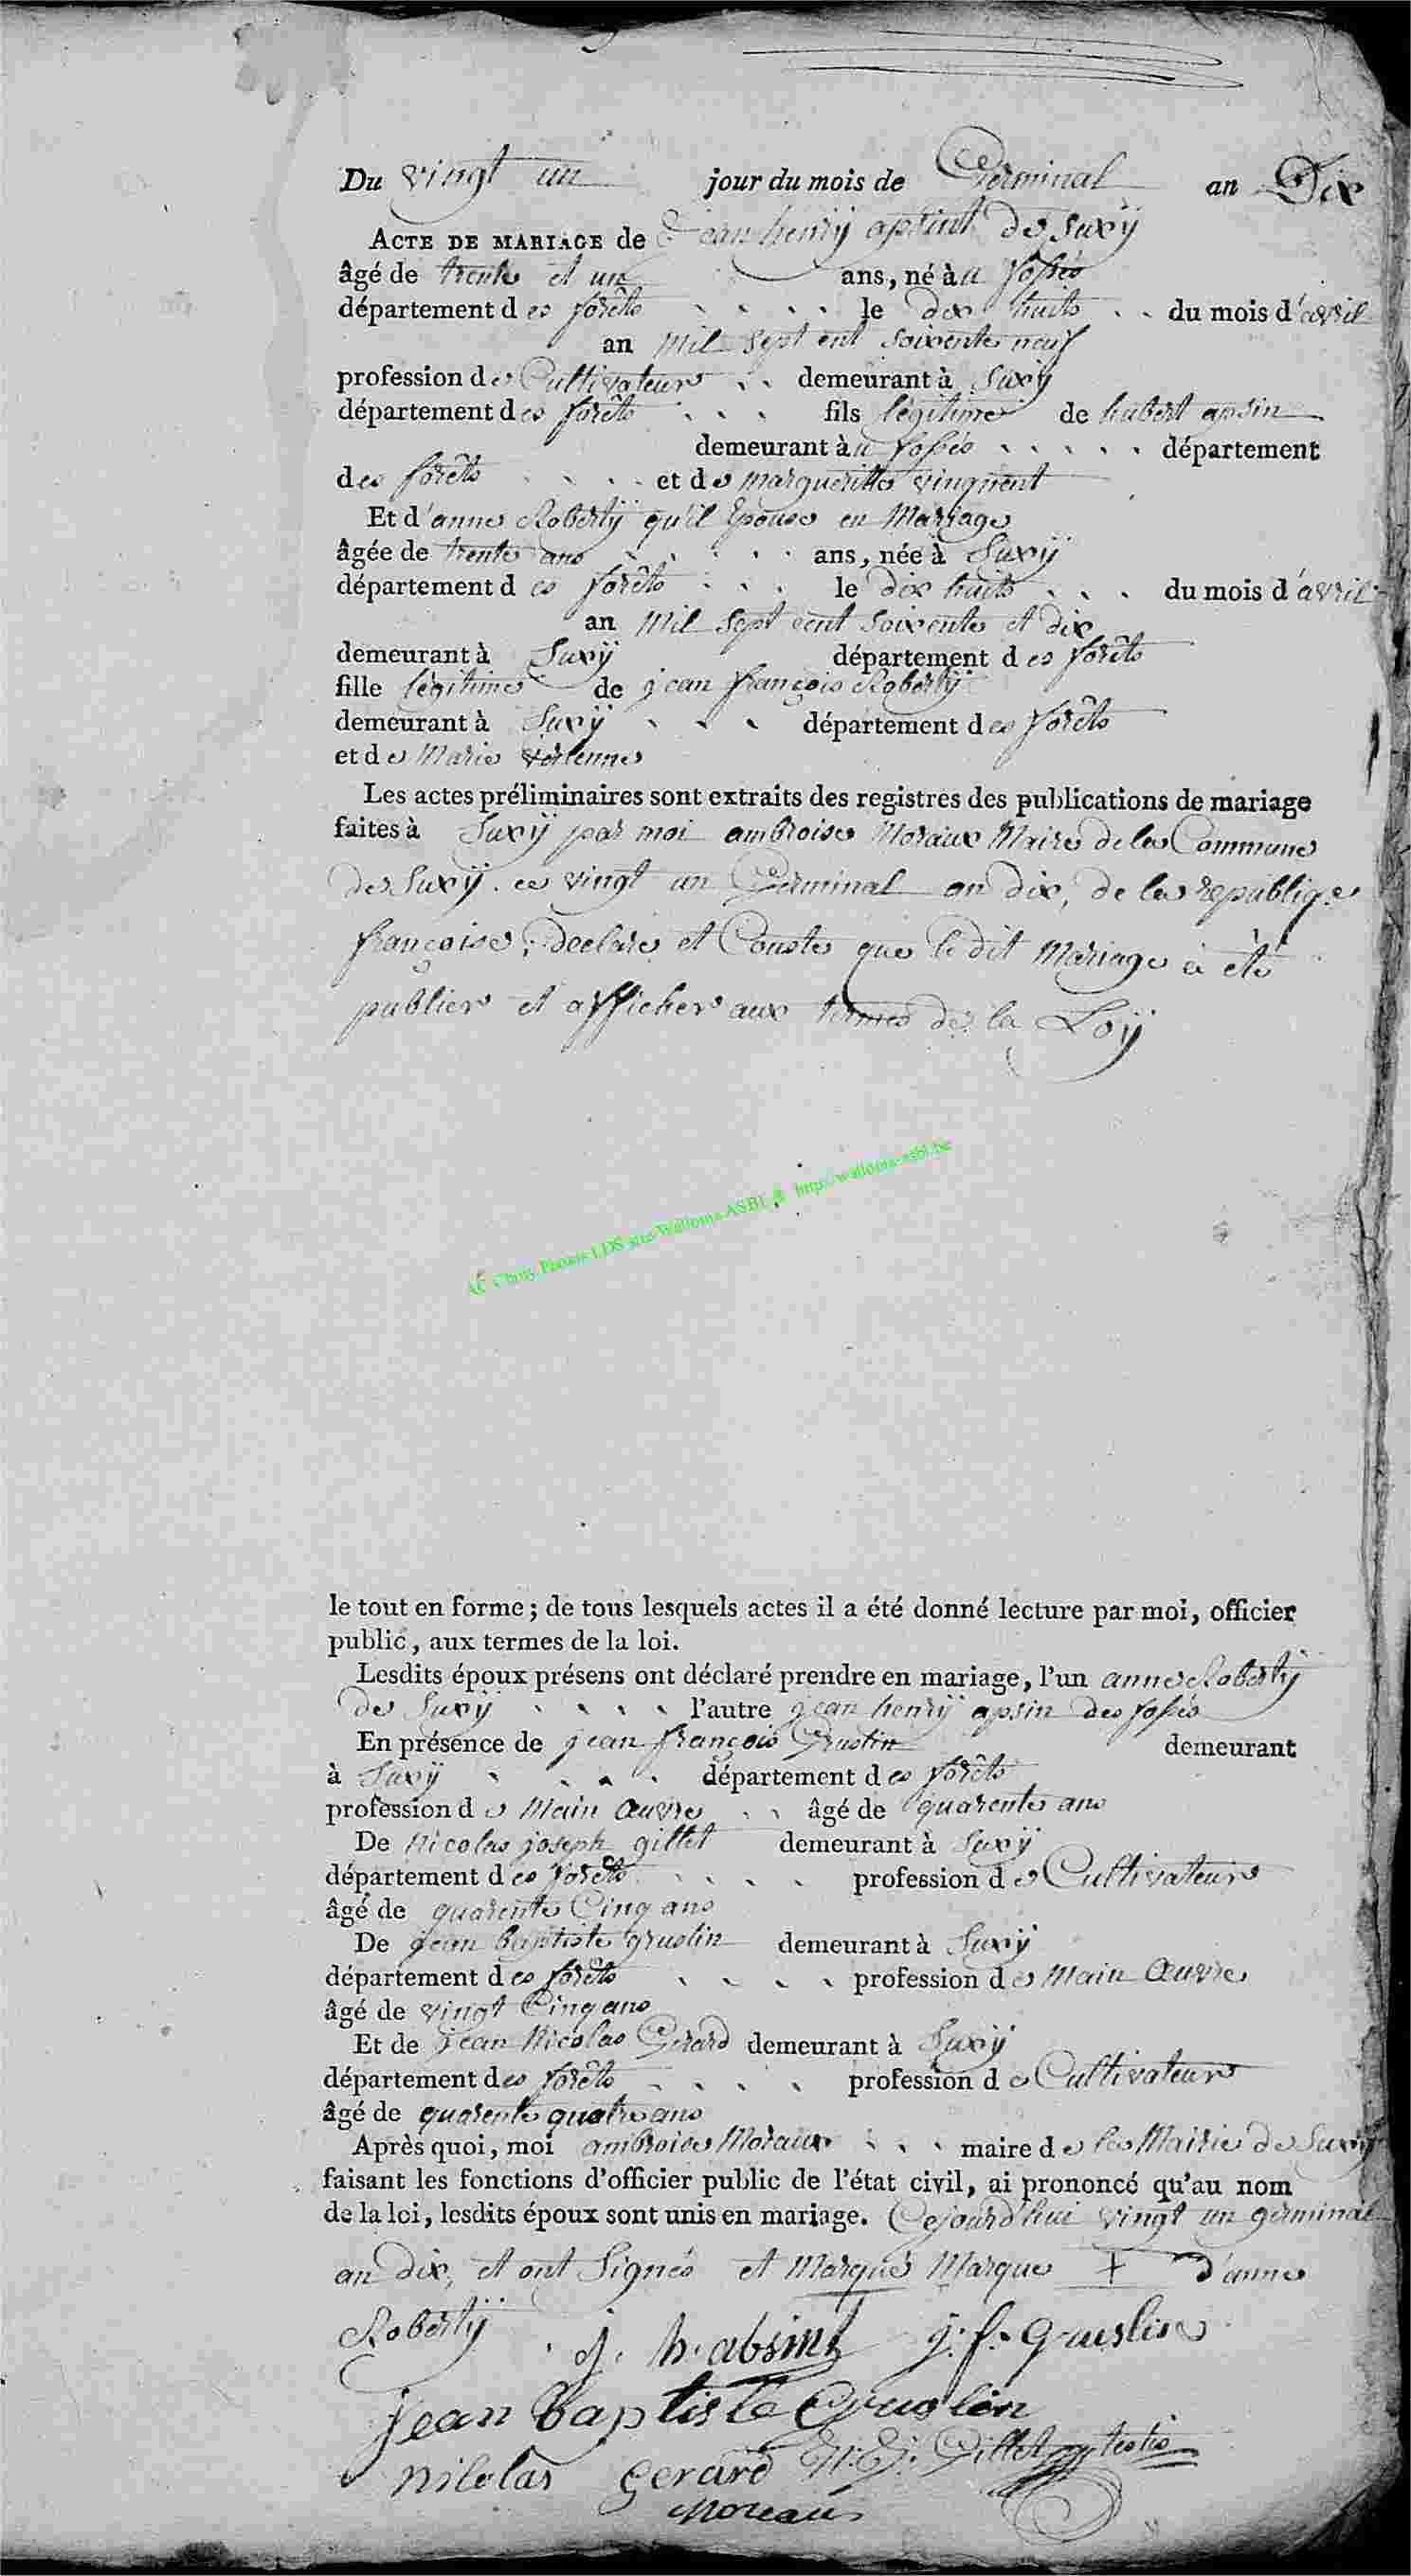 Du vingt un jour du mois de Germinal an Dix
ACTE DE MARIAGE de Jean henrÿ apsint de Suxÿ
âgé de trente et un ans, né à a fossés
département des forêts . . . . le dix huits . . du mois d'avril
an mil sept cent soixente neuf
profession de Cultivateurs . . demeurant à Suxÿ
département des forêts . . . fils légitime de hubert apsin
demeurant à u fossés . . . . . département
des forêts . . . . et de margueritte vingnent
Et d'anne Robertÿ qu'il Epouse en Mariage
âgée de trente ans . . . . . ans, née à Suxÿ
département des forêts . . . le dix huits . . . du mois d'avril
an Mil Sept cent Soixente et dix
demeurant à Suxÿ département des forêts
fille légitime de jean françois Robertÿ
demeurant à Suxÿ . . . département des forêts
et de Marie
Les actes préliminaires sont extraits des registres des publications de mariage
faites à Suxÿ par moi ambroise Moraux Maire de la Commune
de Suxÿ. ce vingt un Germinal an dix, de la republique
françoise; Declare et Conste que le dit Mariage à été
publier et afficher aux termes de la Loÿ
AC Chiny, Photos LDS sur Wallonia ASBL & http://wallonia-asbl.be
le tout en forme; de tous lesquels actes il a été donné lecture par moi, officier
public, aux termes de la loi.
Lesdits époux présens ont déclaré prendre en mariage, l'un anne Robertÿ
de Suxÿ . . . . l'autre jean henrÿ apsin des fossés
En présence de jean françois Grustin demeurant
à Suxÿ . . . . département des forêts
profession de Main Œuvre . . âgé de quarente ans
De Nicolas joseph gillet demeurant à Suxÿ
département des forêts . . . . profession de Cultivateurs
âgé de quarente Cinq ans
De jean baptiste gruslin demeurant à Suxÿ
département des forêts . . . . profession de Main Œuvre
âgé de vingt Cinq ans
Et de jean Nicolas Gerard demeurant à Suxÿ
département des forêts . . . . profession de Cultivateurs
âgé de quarente quatre ans
Après quoi, moi ambroise Moraux . . . maire de la Mairie de Suxÿ
faisant les fonctions d'officier public de l'état civil, ai prononcé qu'au nom
de la loi, lesdits époux sont unis en mariage. Cejourd'hui vingt un germinal
an dix, et ont Signés et Marqué Marque + d'anne
Robertÿ j. h. absint j. f. Gruslin
jean Baptiste Gruslin
nicolas gerard N: J: Gillet testis
Moreaux